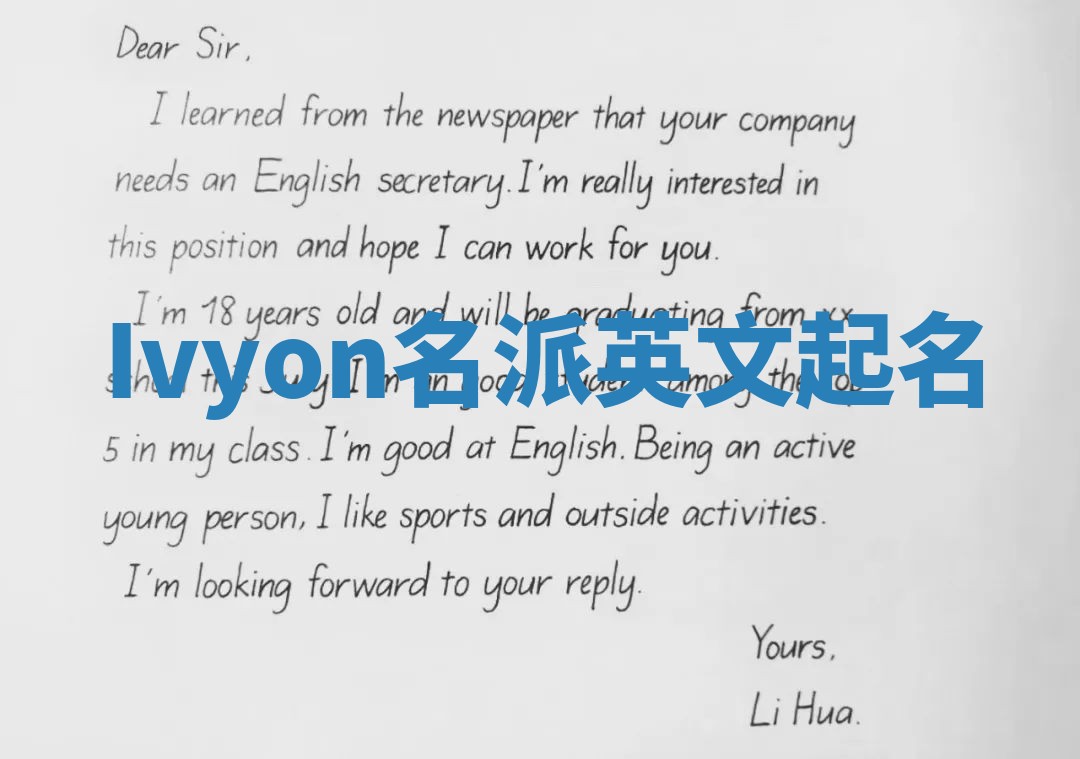 Dear Sir,
I learned from the newspaper that your company
needs an English secretary. I'm really interested in
this position and hope I can work for you.
I'm 18 years old and will be graduating from xx
Ivyon名派英文起名
school this July. I'm an good student among the top
5 in my class. I'm good at English. Being an active
young person, I like sports and outside activities.
I'm looking forward to your reply.
Yours,
Li Hua.